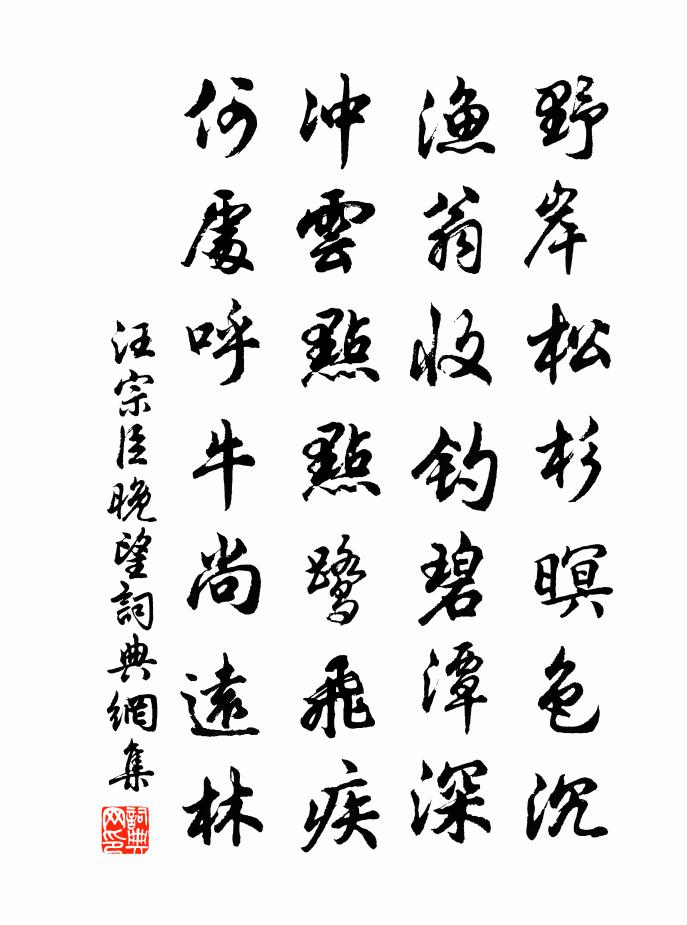 野岸松杉暝色沉
漁翁收釣碧潭深
冲雲點點鷺飛疾
何處呼牛尚遠林
汪宗臣晚望詞典網集
詞典网印